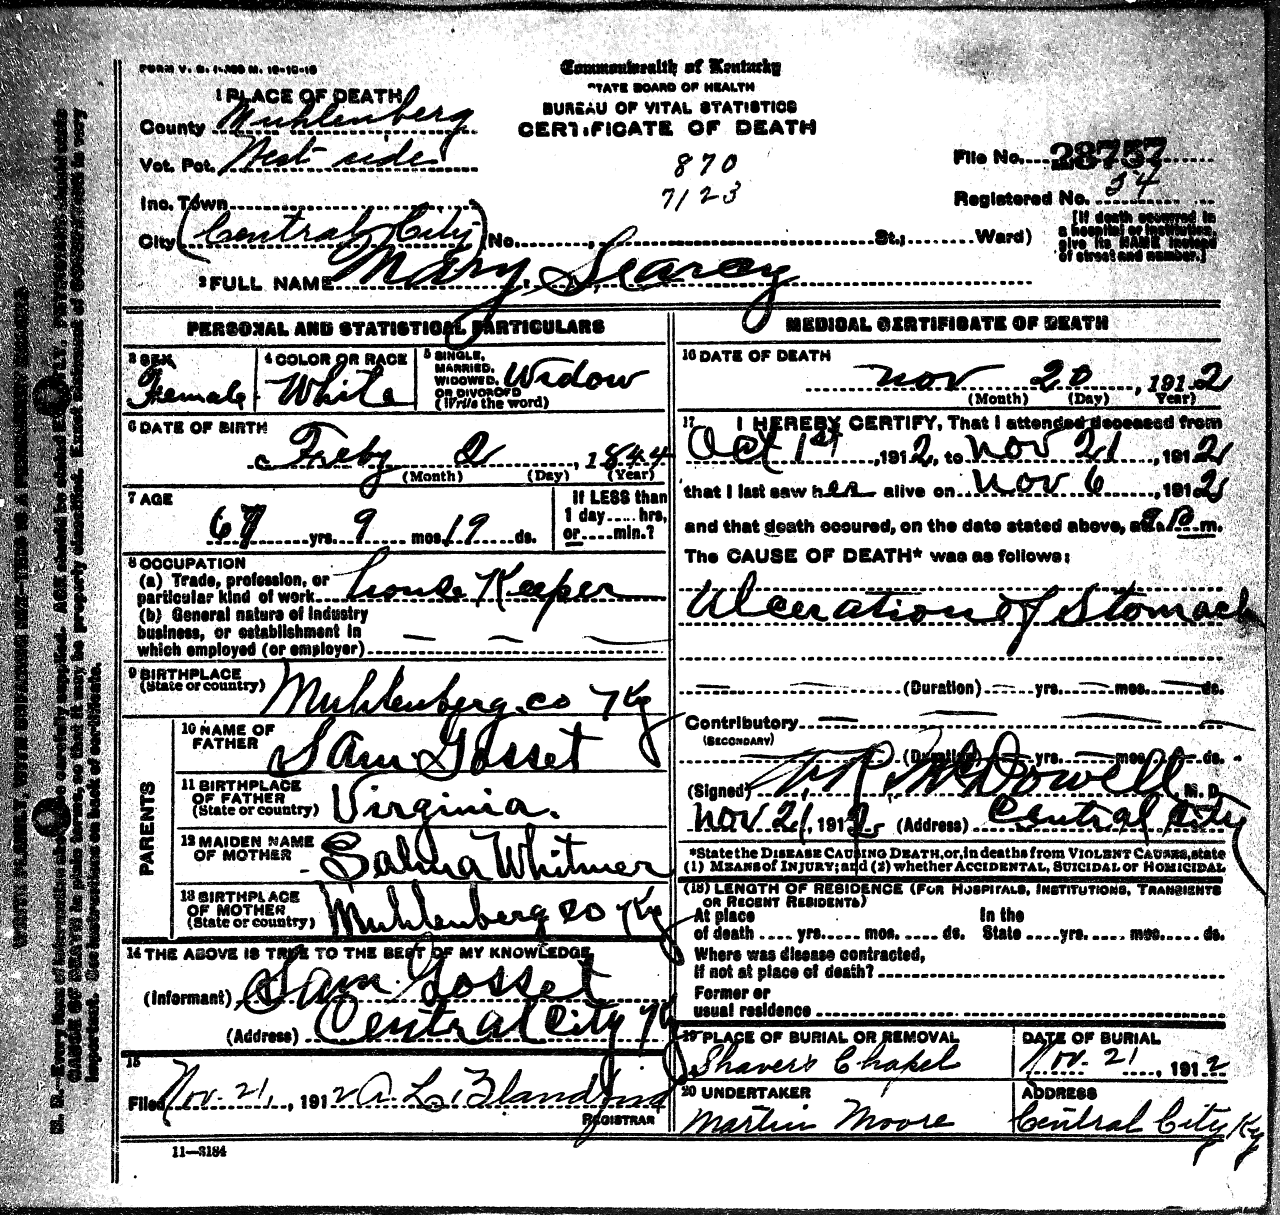 FORM V. S. 1-A50 M. 12-10-10
Commonwealth of Kentucky
STATE BOARD OF HEALTH
BUREAU OF VITAL STATISTICS
CERTIFICATE OF DEATH
1 PLACE OF DEATH
County Muhlenberg
Vot. Pct. West side
Inc. Town
City (Central City) No. St.; Ward)
870
7123
File No. 28757
Registered No. 54
[If death occurred in
a hospital or institution,
give its NAME instead
of street and number.]
2 FULL NAME Mary Searcy
PERSONAL AND STATISTICAL PARTICULARS
3 SEX Female
4 COLOR OR RACE White
5 SINGLE, MARRIED, WIDOWED, OR DIVORCED (Write the word) Widow
6 DATE OF BIRTH
Feby 2, 1844
(Month) (Day) (Year)
7 AGE
67 yrs. 9 mos. 19 ds.
If LESS than
1 day.... hrs,
or....min.?
8 OCCUPATION
(a) Trade, profession, or
particular kind of work House Keeper
(b) General nature of industry
business, or establishment in
which employed (or employer)
9 BIRTHPLACE
(State or country) Muhlenberg co Ky
PARENTS
10 NAME OF
FATHER Sam Gosset
11 BIRTHPLACE
OF FATHER
(State or country) Virginia.
12 MAIDEN NAME
OF MOTHER Whitmer
13 BIRTHPLACE
OF MOTHER
(State or country) Muhlenberg co Ky
14 THE ABOVE IS TRUE TO THE BEST OF MY KNOWLEDGE
(Informant) Sam Gosset
(Address) Central City Ky
15
Filed Nov. 21, 1912 A. L. Blandford
REGISTRAR
11—3184
MEDICAL CERTIFICATE OF DEATH
16 DATE OF DEATH
Nov 20, 1912
(Month) (Day) Year)
17 I HEREBY CERTIFY, That I attended deceased from
Oct 1st, 1912, to Nov 21, 1912
that I last saw her alive on Nov 6, 1912
and that death occured, on the date stated above, at m.
The CAUSE OF DEATH* was as follows:
Ulceration of Stomach
(Duration) yrs. mos. ds.
Contributory
(SECONDARY)
(Duration) yrs. mos. ds.
(Signed) McDowell, M. D.
Nov 21, 1912 (Address) Central City
*State the DISEASE CAUSING DEATH, or, in deaths from VIOLENT CAUSES, state
(1) MEANS OF INJURY; and (2) whether ACCIDENTAL, SUICIDAL OR HOMICIDAL
(18) LENGTH OF RESIDENCE (FOR HOSPITALS, INSTITUTIONS, TRANSIENTS
OR RECENT RESIDENTS)
At place In the
of death .... yrs. .... mos. .... ds. State .... yrs. .... mos. .... ds.
Where was disease contracted,
if not at place of death?
Former or
usual residence
19 PLACE OF BURIAL OR REMOVAL
Shaver's Chapel
DATE OF BURIAL
Nov. 21, 1912
20 UNDERTAKER
Martin Moore
ADDRESS
Central City Ky
WRITE PLAINLY, WITH UNFADING INK—THIS IS A PERMANENT RECORD
N. B.—Every item of information should be carefully supplied. AGE should be stated EXACTLY. PHYSICIANS should state
CAUSE OF DEATH in plain terms, so that it may be properly classified. Exact statement of OCCUPATION is very
important. See instructions on back of certificate.